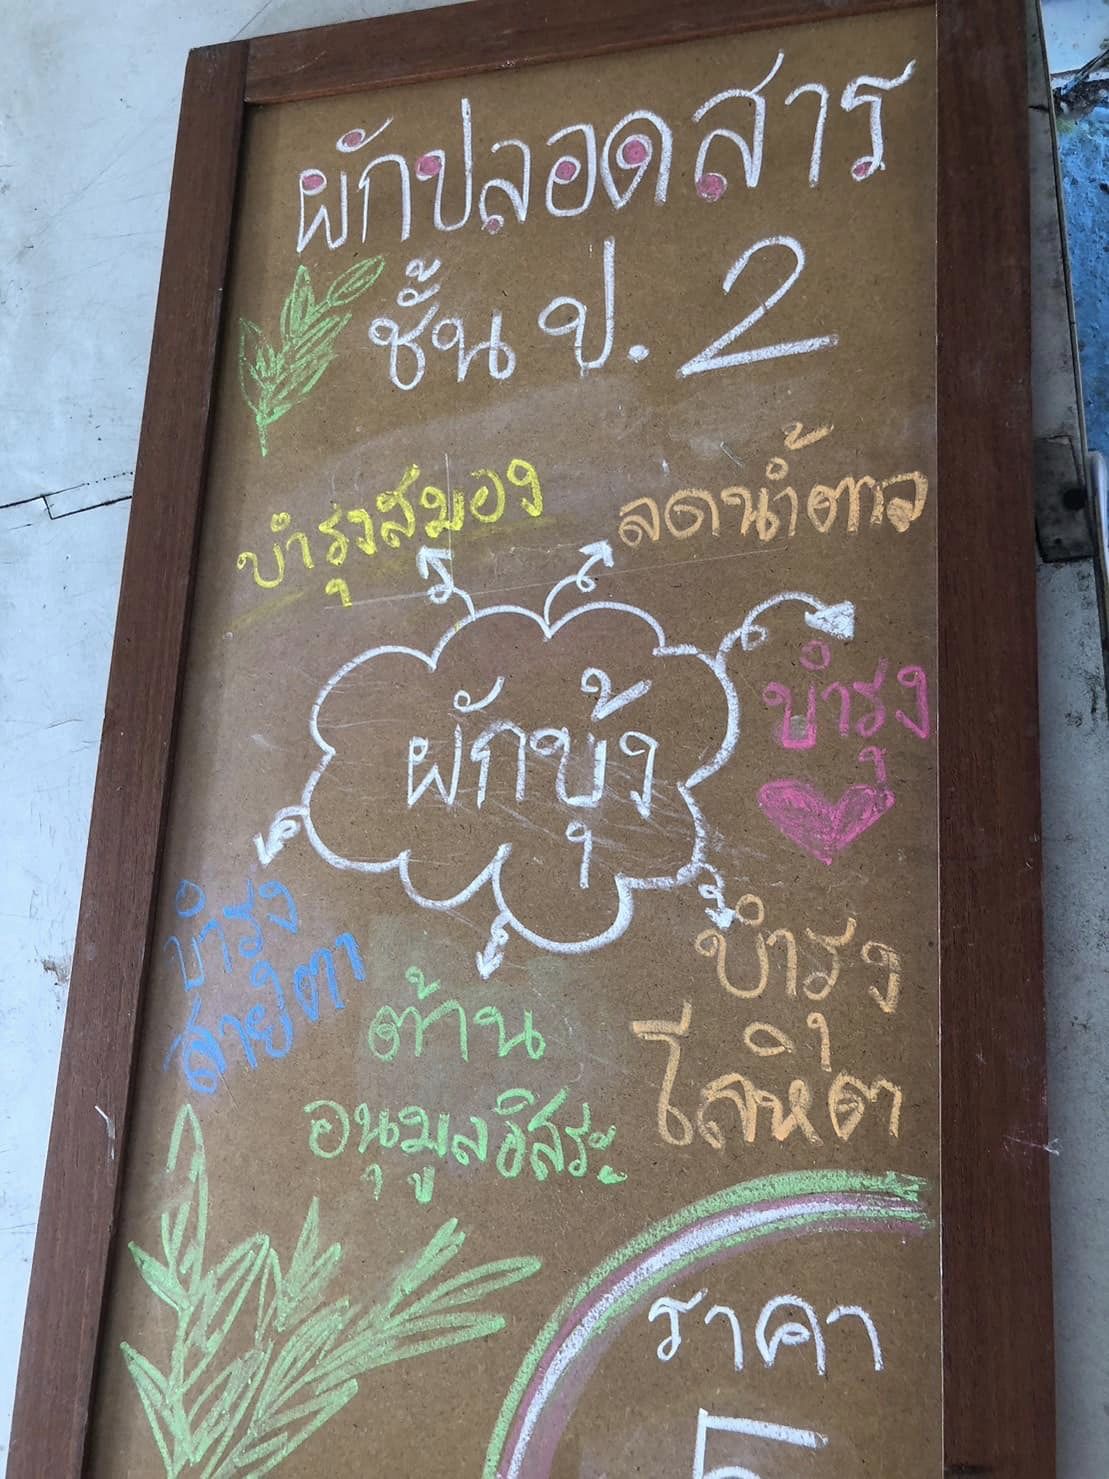 ผักปลอดสาร
ชั้น ป. 2
บำรุงสมอง
ลดน้ำตาล
ผักบุ้ง
บำรุง
บำรุง
สายตา
ต้าน
อนุมูลอิสระ
บำรุง
โลหิต
ราคา
5